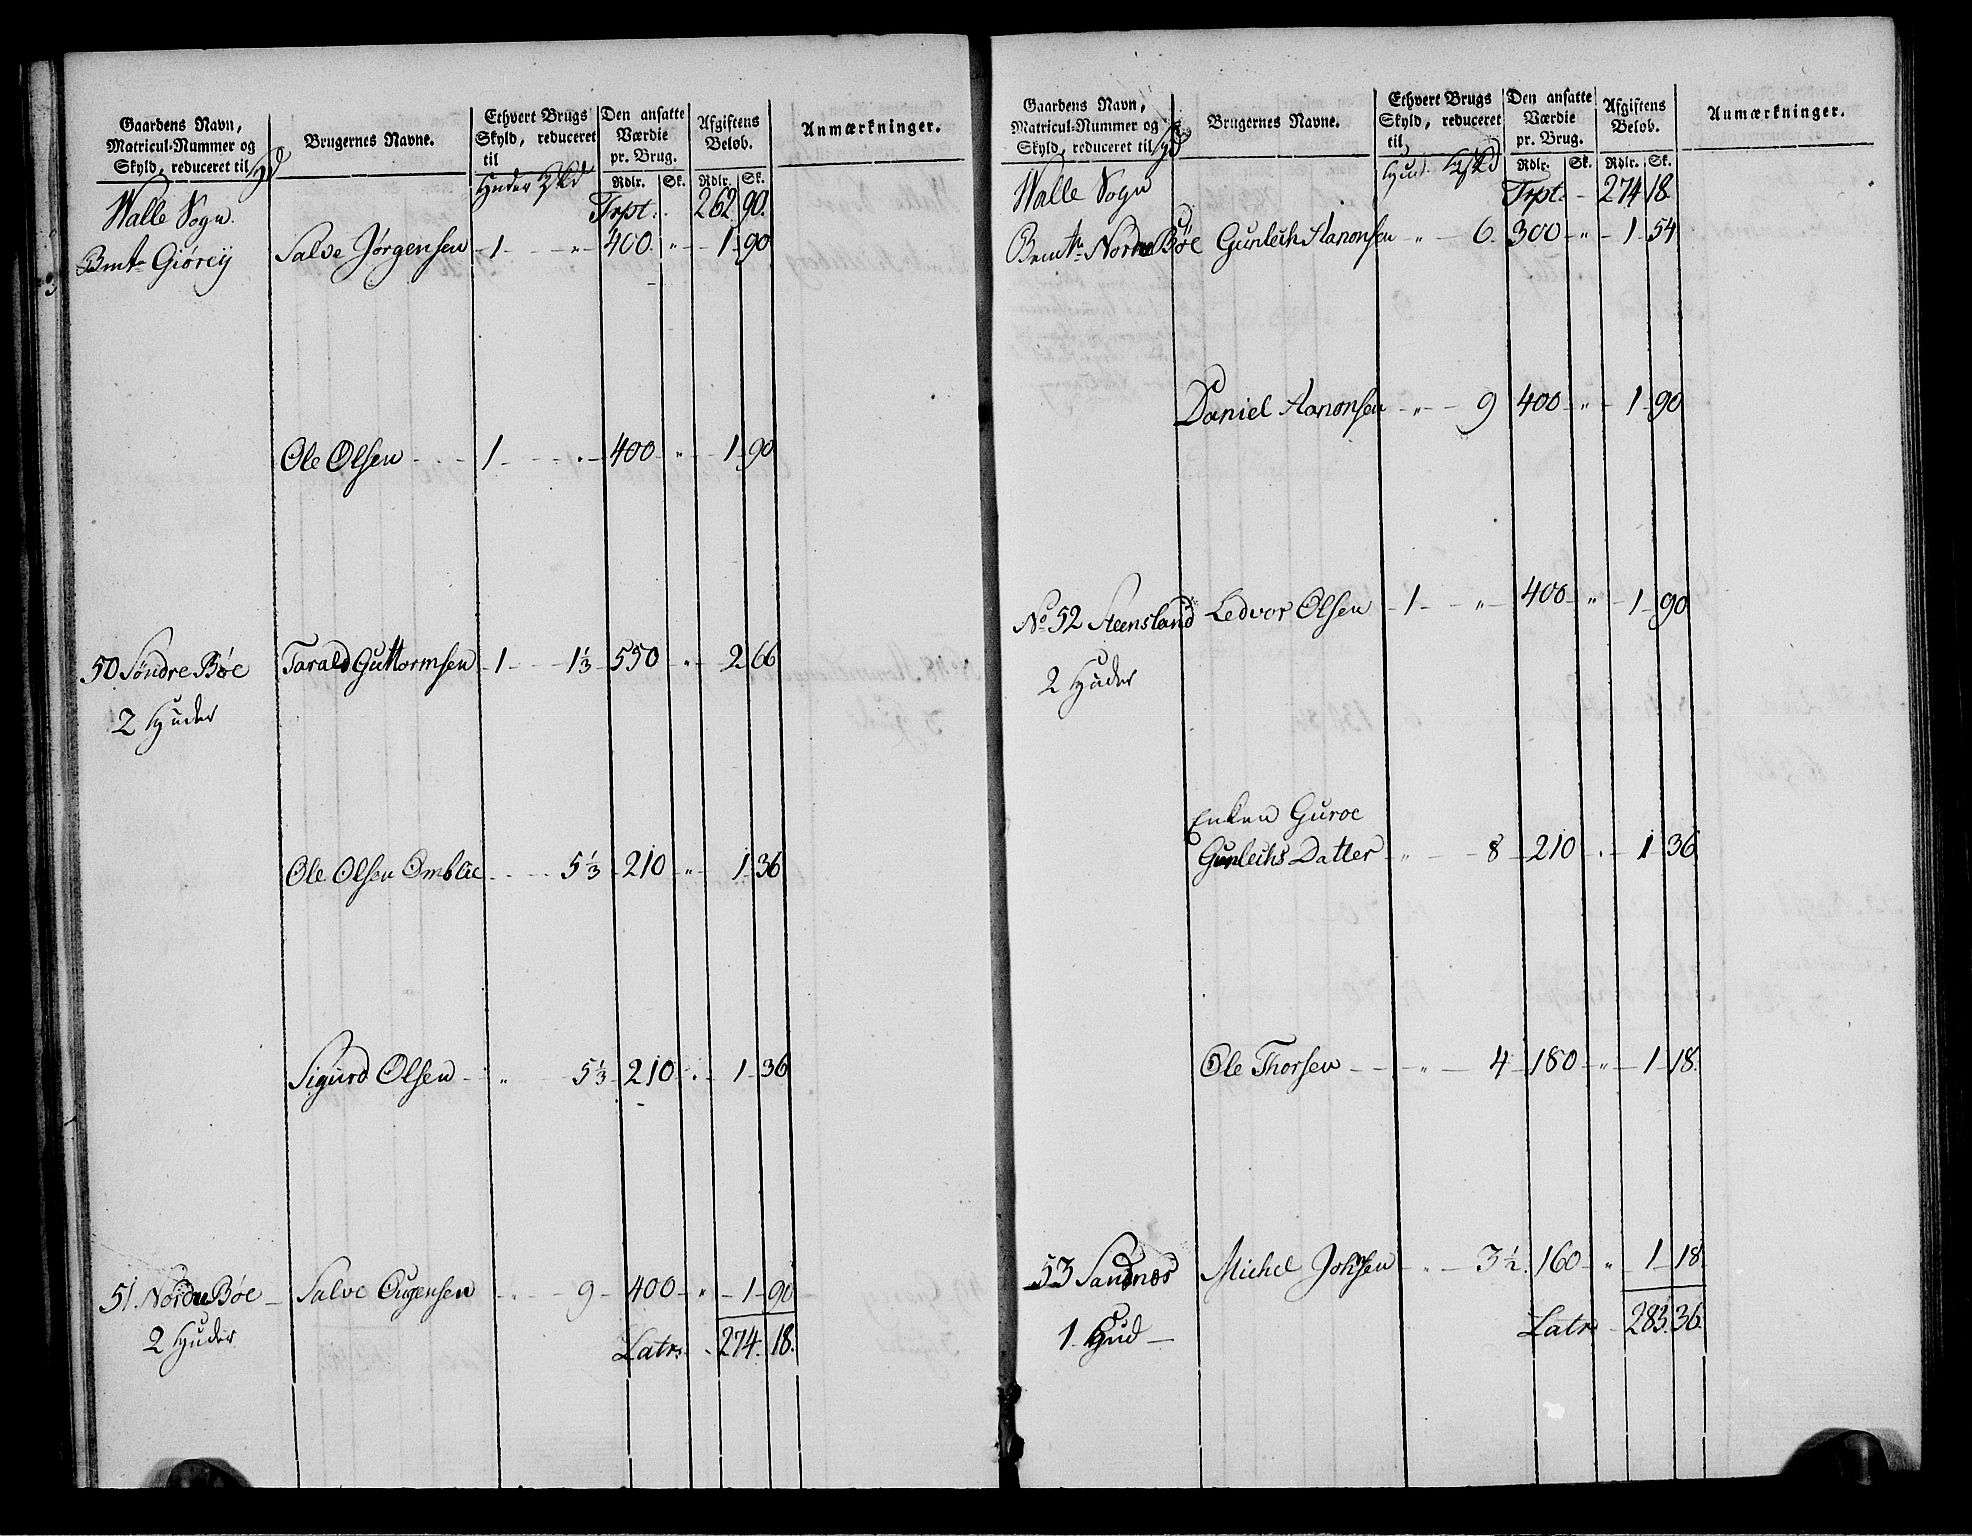 Gaardens Navn, Matricul-Nummer og Skyld, reduceret til | Brugernes Navne. | Ethvert Brugs Skyld, reduceret til | Den ansatte Værdie pr. Brug. | Afgiftens Beløb. | Anmærkninger.
Huder | Rdlr. | Sk. | Rdlr. | Sk.
Walle Sogn | Trpt. | 262 | 90.
Giørey | Salve Jørgensen | 1 | „ | 400 | „ | 1 | 90
Ole Olsen | 1 | „ | 400 | „ | 1 | 90
50 Søndre Bøe | Tarald Guttormsen | 1 | 1⅓ | 550 | „ | 2 | 66
2 Huder
Ole Olsen Omblie | 5⅓ | 210 | „ | 1 | 36
Sigurd Olsen | „ | 5⅓ | 210 | „ | 1 | 36
51 Nordre Bøe | Salve Ougensen | „ | 9 | 400 | „ | 1 | 90
2 Huder | Latr. | 274 | 18.
Gaardens Navn, Matricul-Nummer og Skyld, reduceret til | Brugernes Navne. | Ethvert Brugs Skyld, reduceret til | Den ansatte Værdie pr. Brug. | Afgiftens Beløb. | Anmærkninger.
Hud. | Rdlr. | Sk. | Rdlr. | Sk.
Walle Sogn | Trpt. | 274 | 18
Nordre Bøe | Gunlech Aanonsen | „ | 6 | 300 | „ | 1 | 54
Daniel Aanonsen | „ | 9 | 400 | „ | 1 | 90
No 52 Steensland | Ledvor Olsen | 1 | „ | 400 | „ | 1 | 90
2 Huder
Enken Guroe
Gunlechs Datter | „ | 8 | 210 | „ | 1 | 36
Ole Thorsen | „ | 4 | 180 | „ | 1 | 18.
53 Sandnæs | Michel Johnsen | „ | 3½ | 160 | „ | 1 | 18
1. Hud | Latr. | 283. | 36.